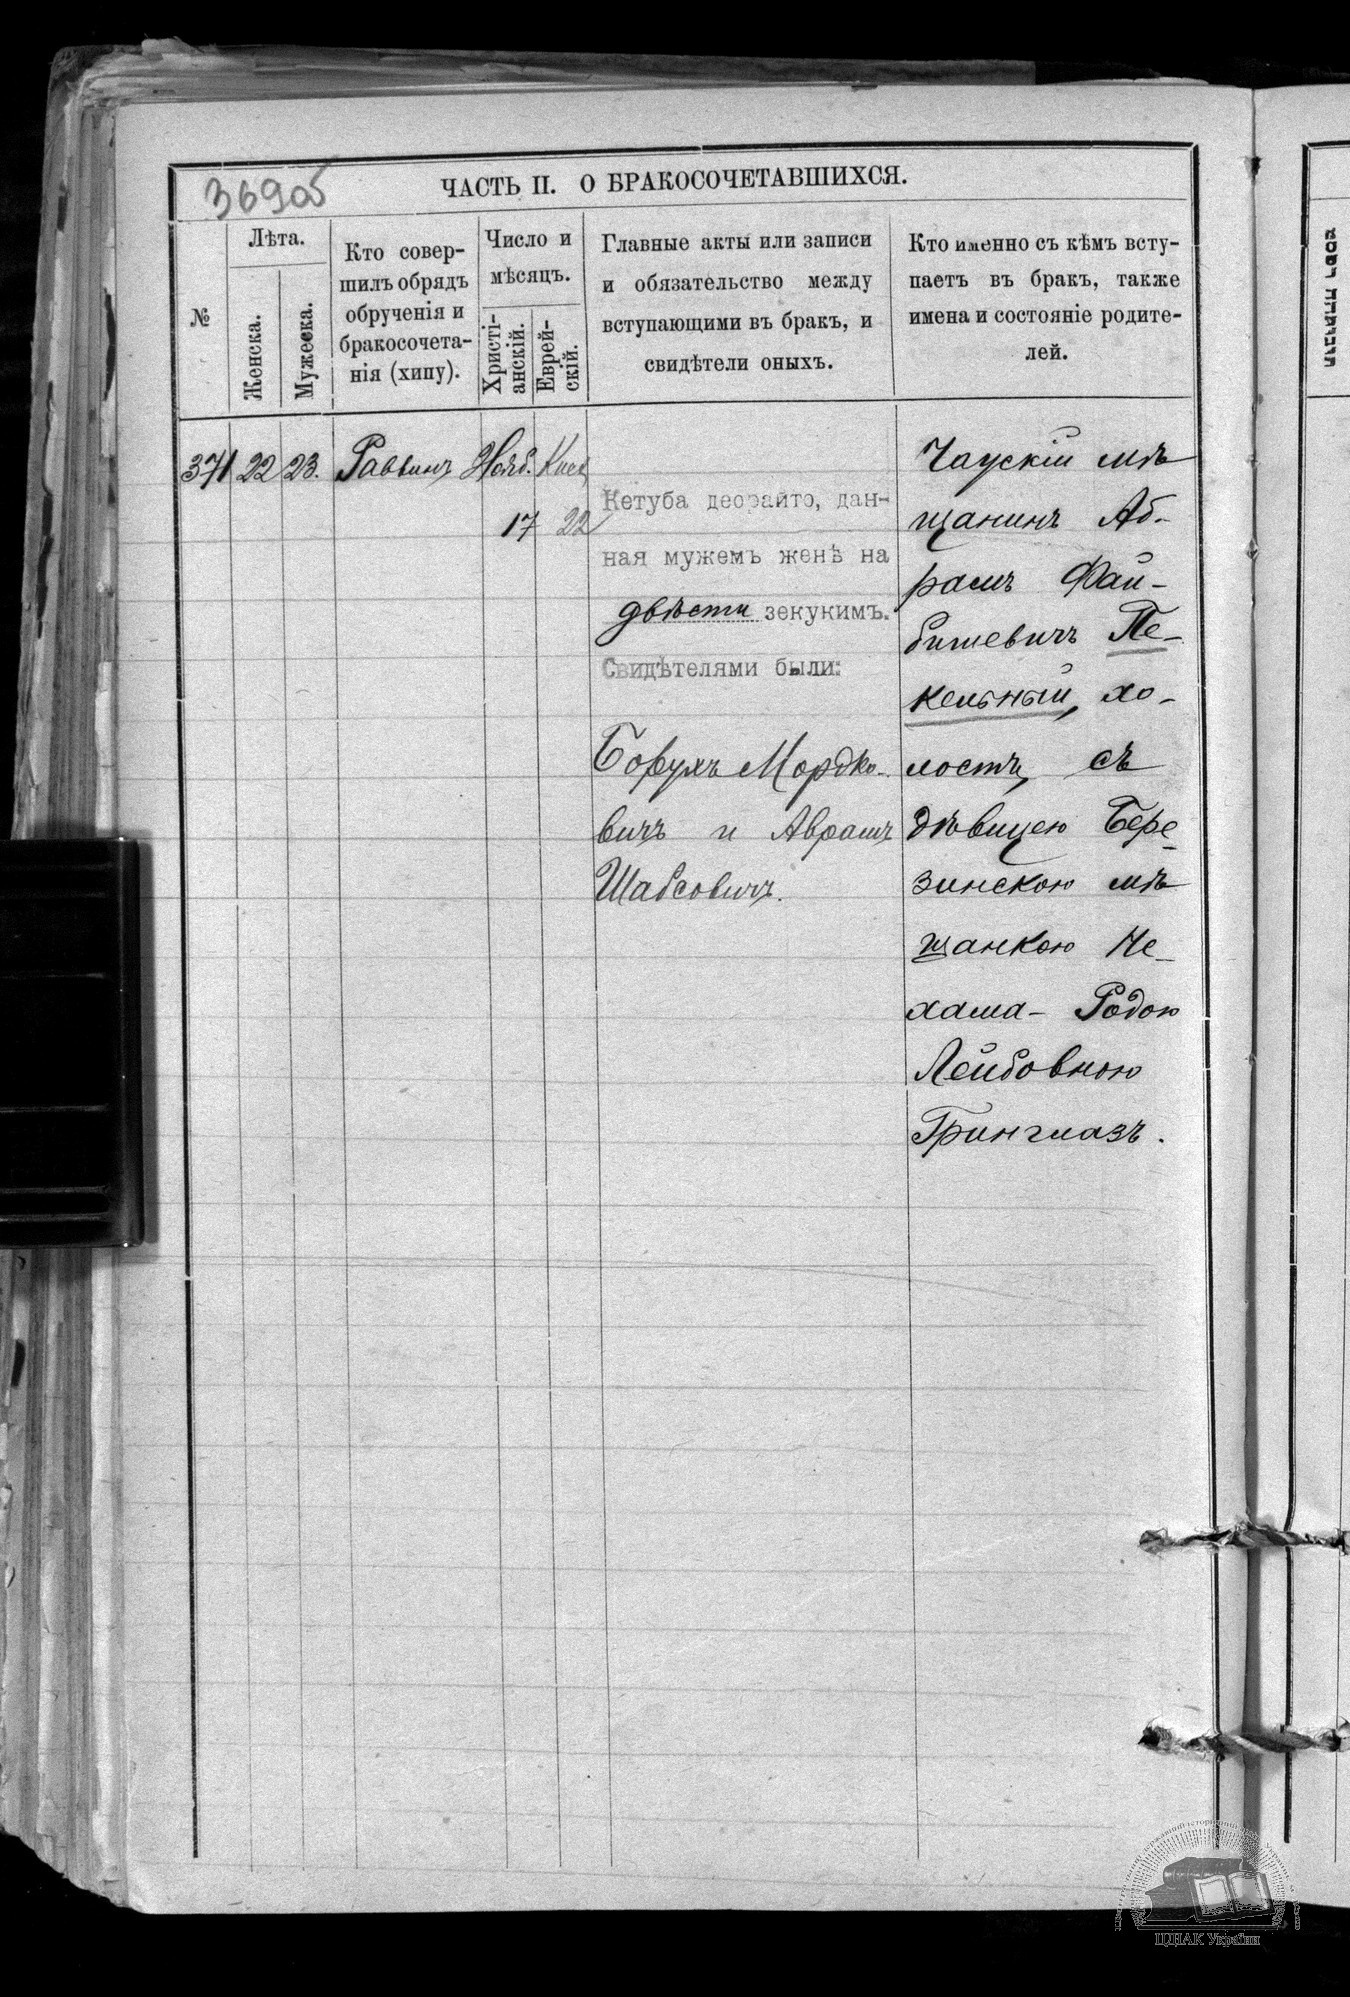 369об
ЧАСТЬ II. О БРАКОСОЧЕТАВШИХСЯ.
№
Лѣта.
Женска.
Мужеска.
Кто совер-
шилъ обрядъ
обрученія и
бракосочета-
нія (хипу).
Число и
мѣсяцъ.
Христі-
анскій.
Еврей-
скій.
Главные акты или записи
и обязательство между
вступающими въ бракъ, и
свидѣтели оныхъ.
Кто именно съ кѣмъ всту-
паетъ въ бракъ, также
имена и состояніе родите-
лей.
371 22 23. Раввинъ Нояб.
17 22
Кетуба деорайто, дан-
ная мужемъ женѣ на
двѣсти зекукимъ.
Свидѣтелями были:
Борухъ Мордко-
вичъ и Аврамъ
Шабсовичъ.
Чаускій мѣ
щанинъ Аб-
рамъ Фай-
бишевичъ Пе-
кельный, хо-
лостъ, съ
дѣвицею Бере-
зинскою мѣ
щанкою Не-
хама-Родою
Лейбовною
Гринглазъ.
ЦДІАК України